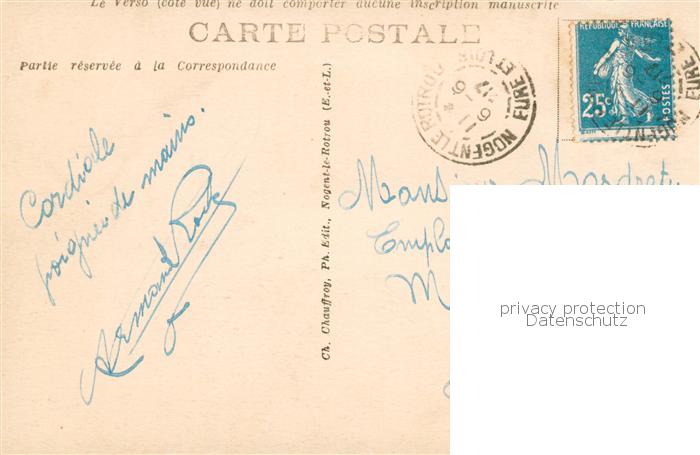 Le Verso (côté vue) ne doit comporter aucune inscription manuscrite
CARTE POSTALE
Partie réservée à la Correspondance
Cordiale
poignée de mains.
Armand
Ch. Chauffroy, Ph. Edit., Nogent-le-Rotrou (E.-et-L.)
REPUBLIQUE FRANÇAISE
25c
POSTES
NOGENT LE ROTROU
EURE ET LOIR
Monsieur
Emplo
M
privacy protection
Datenschutz